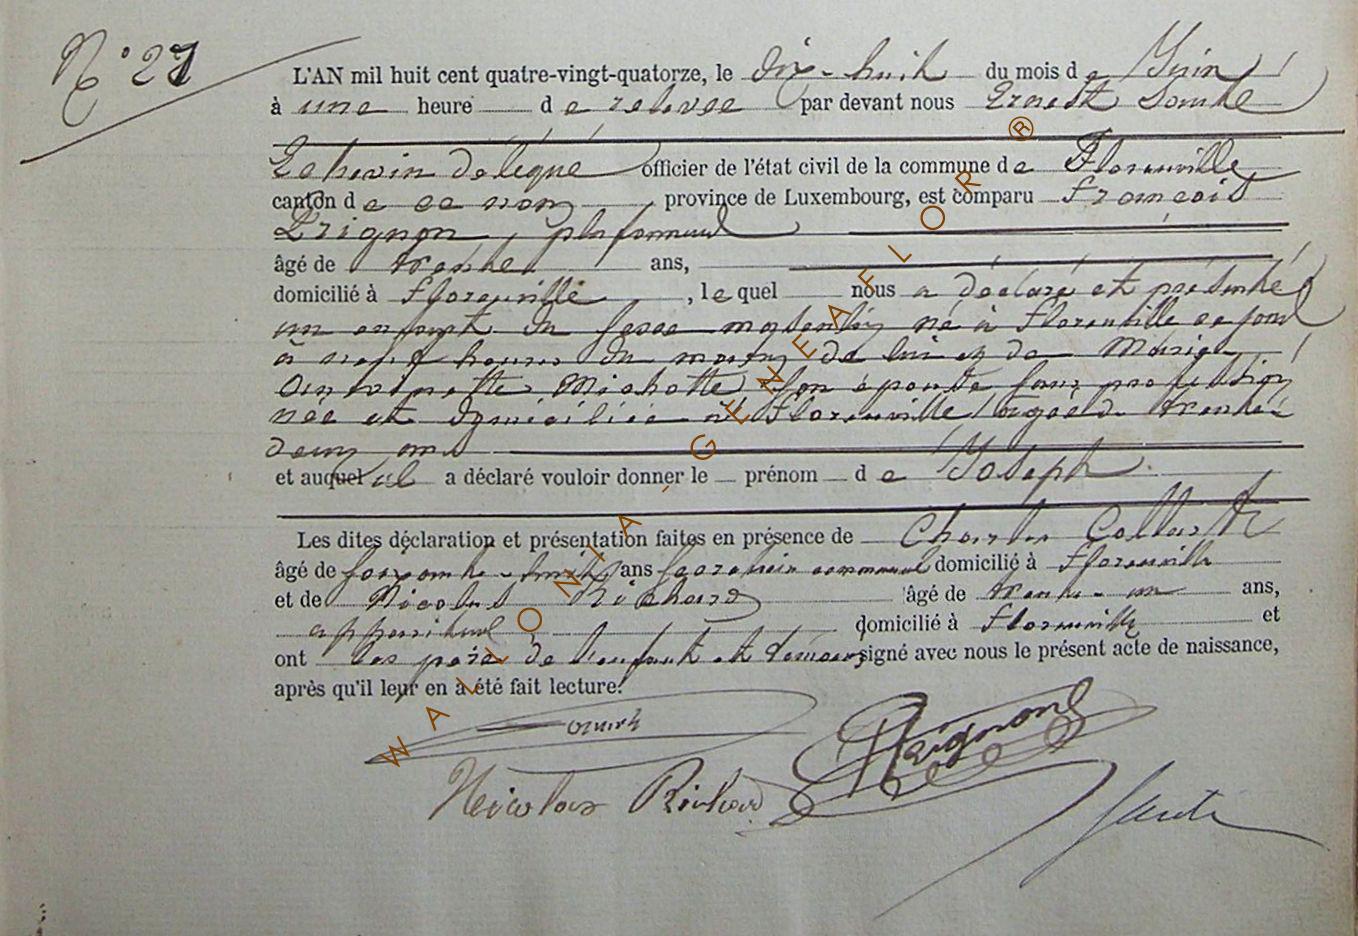 N° 27
L'AN mil huit cent quatre-vingt-quatorze, le dix-huit du mois de Juin
à une heure de relevée par devant nous Ernest
Echevin délégué officier de l'état civil de la commune de Florenville
canton de ce nom, province de Luxembourg, est comparu François
plafonneur
âgé de trente ans,
domicilié à Florenville, lequel nous a déclaré et présenté
un enfant du sexe masculin né à Florenville ce jour
à neuf heures du matin de lui et de Marie
Antoinette Michotte son épouse sans profession
née et domiciliée à Florenville âgée de trente
deux ans
et auquel il a déclaré vouloir donner le prénom de Joseph
Les dites déclaration et présentation faites en présence de Charles
âgé de soixante-huit ans domicilié à Florenville
et de Nicolas Richard âgé de trente-un ans,
domicilié à Florenville et
ont les père de l'enfant et témoins signé avec nous le présent acte de naissance,
après qu'il leur en a été fait lecture.
Nicolas Richard
WALLONIA - GENEAFLOR ®